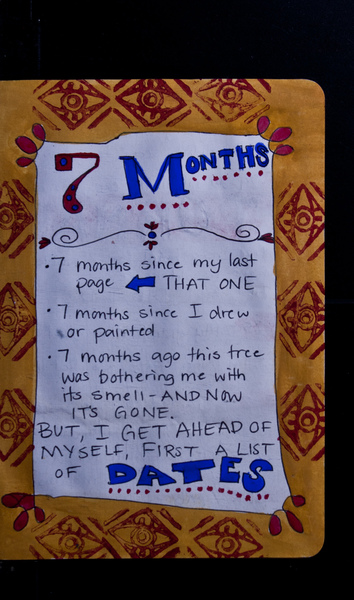 7 MONTHS
• 7 months since my last
page ← THAT ONE
• 7 months since I drew
or painted
• 7 months ago this tree
was bothering me with
its smell - AND NOW
IT'S GONE.
BUT, I GET AHEAD OF
MYSELF, FIRST A LIST
OF DATES